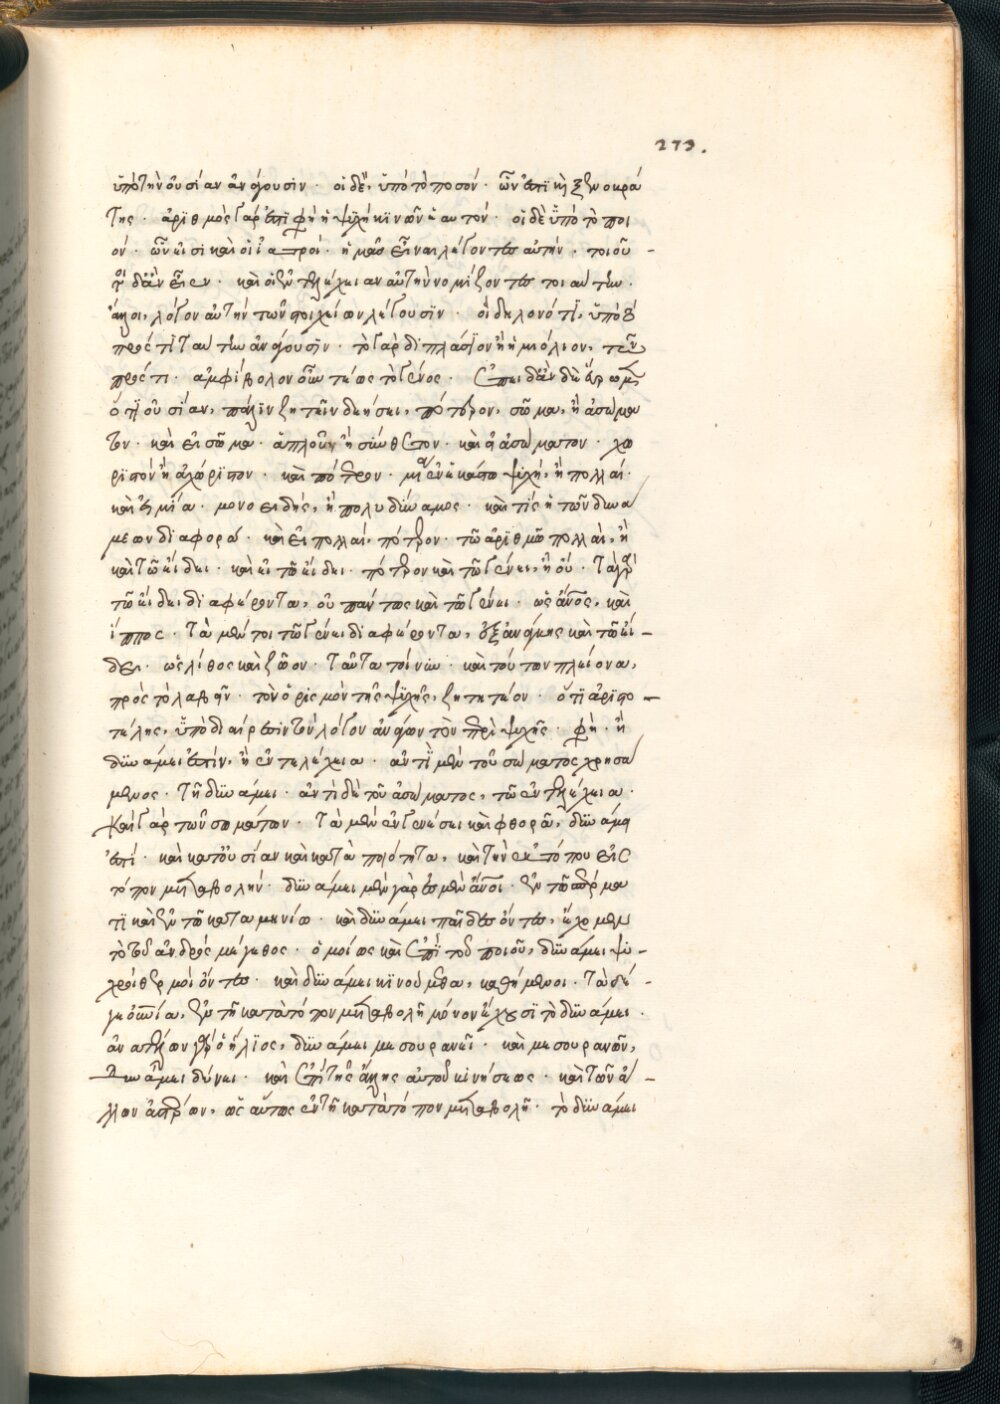 273.
ὑπὸ τὴν οὐσίαν ἀνάγουσιν· οἱ δὲ, ὑπὸ τὸ ποσόν· ὧν ἐστὶ καὶ ξενοκρά
της· ἀριθμὸς γάρ ἐστι φησὶ ἡ ψυχὴ κινῶν ἑαυτόν· οἱ δὲ ὑπὸ τὸ ποι
όν· ὧν εἰσὶ καὶ οἱ ἰατροί· ἡ κρᾶσιν εἶναι λέγοντες αὐτήν· τοιοῦ-
τοι δ' ἂν εἶεν· καὶ οἱ ἐντελέχειαν αὐτὴν νομίζοντες τοιαύτην·
ἄλλοι, λόγον αὐτὴν τῶν στοιχείων λέγουσιν· οἳ δηλονότι, ὑπὸ τὸ
πρός τι ταύτην ἀνάγουσιν· τὸ γὰρ διπλάσιον ἢ ἡμιόλιον, τῶν
πρός τι· ἀμφίβολον οὖν τέως τὸ γένος· ἐπειδὰν δὲ εὕρωμεν
ὅτι οὐσίαν, πάλιν ζητεῖν δεήσει, πότερον, σῶμα, ἢ ἀσώμα
τον· καὶ εἰ σῶμα· ἁπλοῦν ἢ σύνθετον· καὶ εἰ ἀσώματον· χω
ριστόν ἢ ἀχώριστον· καὶ πότερον· μία ἐν ἑκάστῳ ψυχή, ἢ πολλαί·
καὶ εἰ μία· μονοειδής, ἢ πολυδύναμος· καὶ τίς ἡ τῶν δυνά
μεων διαφορά· καὶ εἰ πολλαί, πότερον· τῷ ἀριθμῷ πολλαί, ἢ
καὶ τῷ εἴδει· καὶ εἰ τῷ εἴδει· πότερον καὶ τῷ γένει, ἢ οὔ· τὰ γὰρ
τῷ εἴδει διαφέροντα, οὐ πάντως καὶ τῷ γένει· ὡς ἄνος, καὶ
ἵππος· τὰ μέντοι τῷ γένει διαφέροντα, ἐξ ἀνάγκης καὶ τῷ εἴ-
δει· ὡς λίθος καὶ ζῶον· ταῦτα τοίνυν· καὶ τούτων πλείονα,
πρὸς τὸ λαβεῖν· τὸν ὁρισμὸν τῆς ψυχῆς, ζητητέον· ὅτι ἀριστο-
τέλης, ὑπὸ διαίρεσιν τὸν λόγον ἀνάγων τὸν περὶ ψυχῆς· φησὶ· ἢ
δυνάμει ἐστίν, ἢ ἐντελέχεια· ἀντὶ μὲν τοῦ σώματος χρησά
μενος· τῇ δυνάμει· ἀντὶ δὲ τοῦ ἀσώματος, τῷ ἐντελέχεια·
καὶ γὰρ τῶν σωμάτων· τὰ μὲν ἐν γενέσει καὶ φθορᾷ, δυνάμει
ἐστί· καὶ κατ' οὐσίαν καὶ κατὰ ποιότητα, καὶ τὴν ἐκ τόπου εἰς
τόπον μεταβολήν· δυνάμει μὲν γάρ ἐσμεν ἄνοι· ἐν τῷ σπέρμα
τι καὶ ἐν τῷ καταμηνίῳ· καὶ δυνάμει παῖδες ὄντες, ἔχομεν
τὸ τοῦ ἀνδρὸς μέγεθος· ὁμοίως καὶ ἐπὶ τοῦ ποιοῦ, δυνάμει ψυ-
χροὶ θερμοὶ ὄντες· καὶ δυνάμει κινούμεθα, καθήμενοι· τὰ δέ-
γε οὐράνια, ἐν τῇ κατὰ τόπον μεταβολῇ μόνον ἔχουσι τὸ δυνάμει·
ἀνατέλλων γὰρ ὁ ἥλιος, δυνάμει μεσουρανεῖ· καὶ μεσουρανῶν,
δυνάμει δύνει· καὶ ἐπὶ τῆς ἄλλης αὐτοῦ κινήσεως· καὶ τῶν ἄ-
λλων ἀστέρων, ὡσαύτως ἐν τῇ κατὰ τόπον μεταβολῇ· τὸ δυνάμει